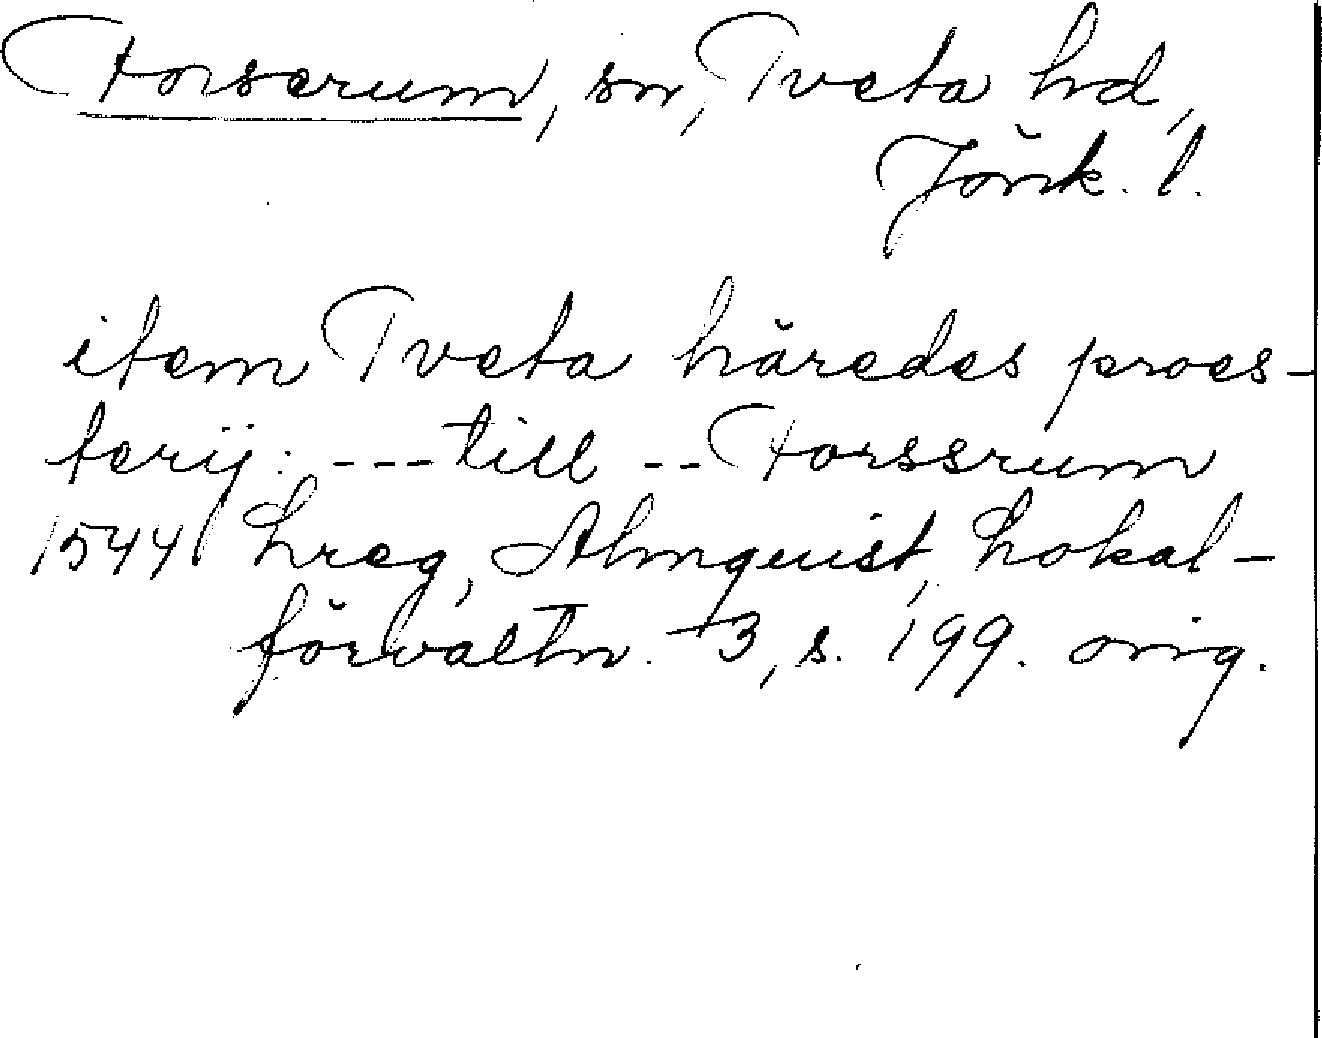 Forserum, sn, Tveta hd,
Jönk. l.
item Tveta häredes proes-
terij: --- till -- Forssrum
1544 Lreg, Almquist, Lokal-
förvaltn. +3, s. 199. orig.